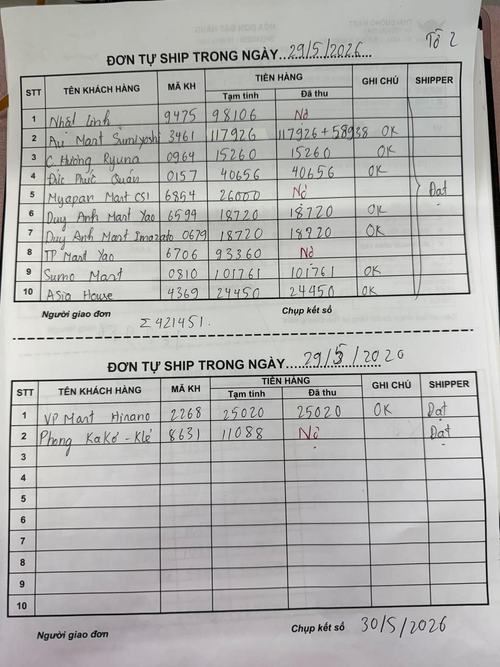 Tổ 2
ĐƠN TỰ SHIP TRONG NGÀY 29/5/2026
STT TÊN KHÁCH HÀNG MÃ KH TIỀN HÀNG GHI CHÚ SHIPPER
Tạm tính Đã thu
1 Nhật Linh 9475 98106 Nợ
2 Au Mart Sumiyoshi 3461 117926 117926 + 58938 OK
3 C. Hương Ryuna 0964 15260 15260 OK
4 Đức Phúc Quán 0157 40656 40656 OK
5 Myapan Mart CS1 6864 26000 Nợ Đạt
6 Duy Anh Mart Yao 6599 18720 18720 OK
7 Duy Anh Mart Imazato 0679 18720 18720 OK
8 TP Mart Yao 6706 93360 Nợ
9 Sumo Mart 0810 101761 101761 OK
10 Asia House 4369 24450 24450 OK
Người giao đơn Σ 421451. Chụp kết sổ
ĐƠN TỰ SHIP TRONG NGÀY 29/5/2020
STT TÊN KHÁCH HÀNG MÃ KH TIỀN HÀNG GHI CHÚ SHIPPER
Tạm tính Đã thu
1 VP Mart Hinano 2268 25020 25020 OK Đạt
2 Phong KaKó - Klé 8631 11088 Nợ Đạt
3
4
5
6
7
8
9
10
Người giao đơn Chụp kết sổ 30/5/2026